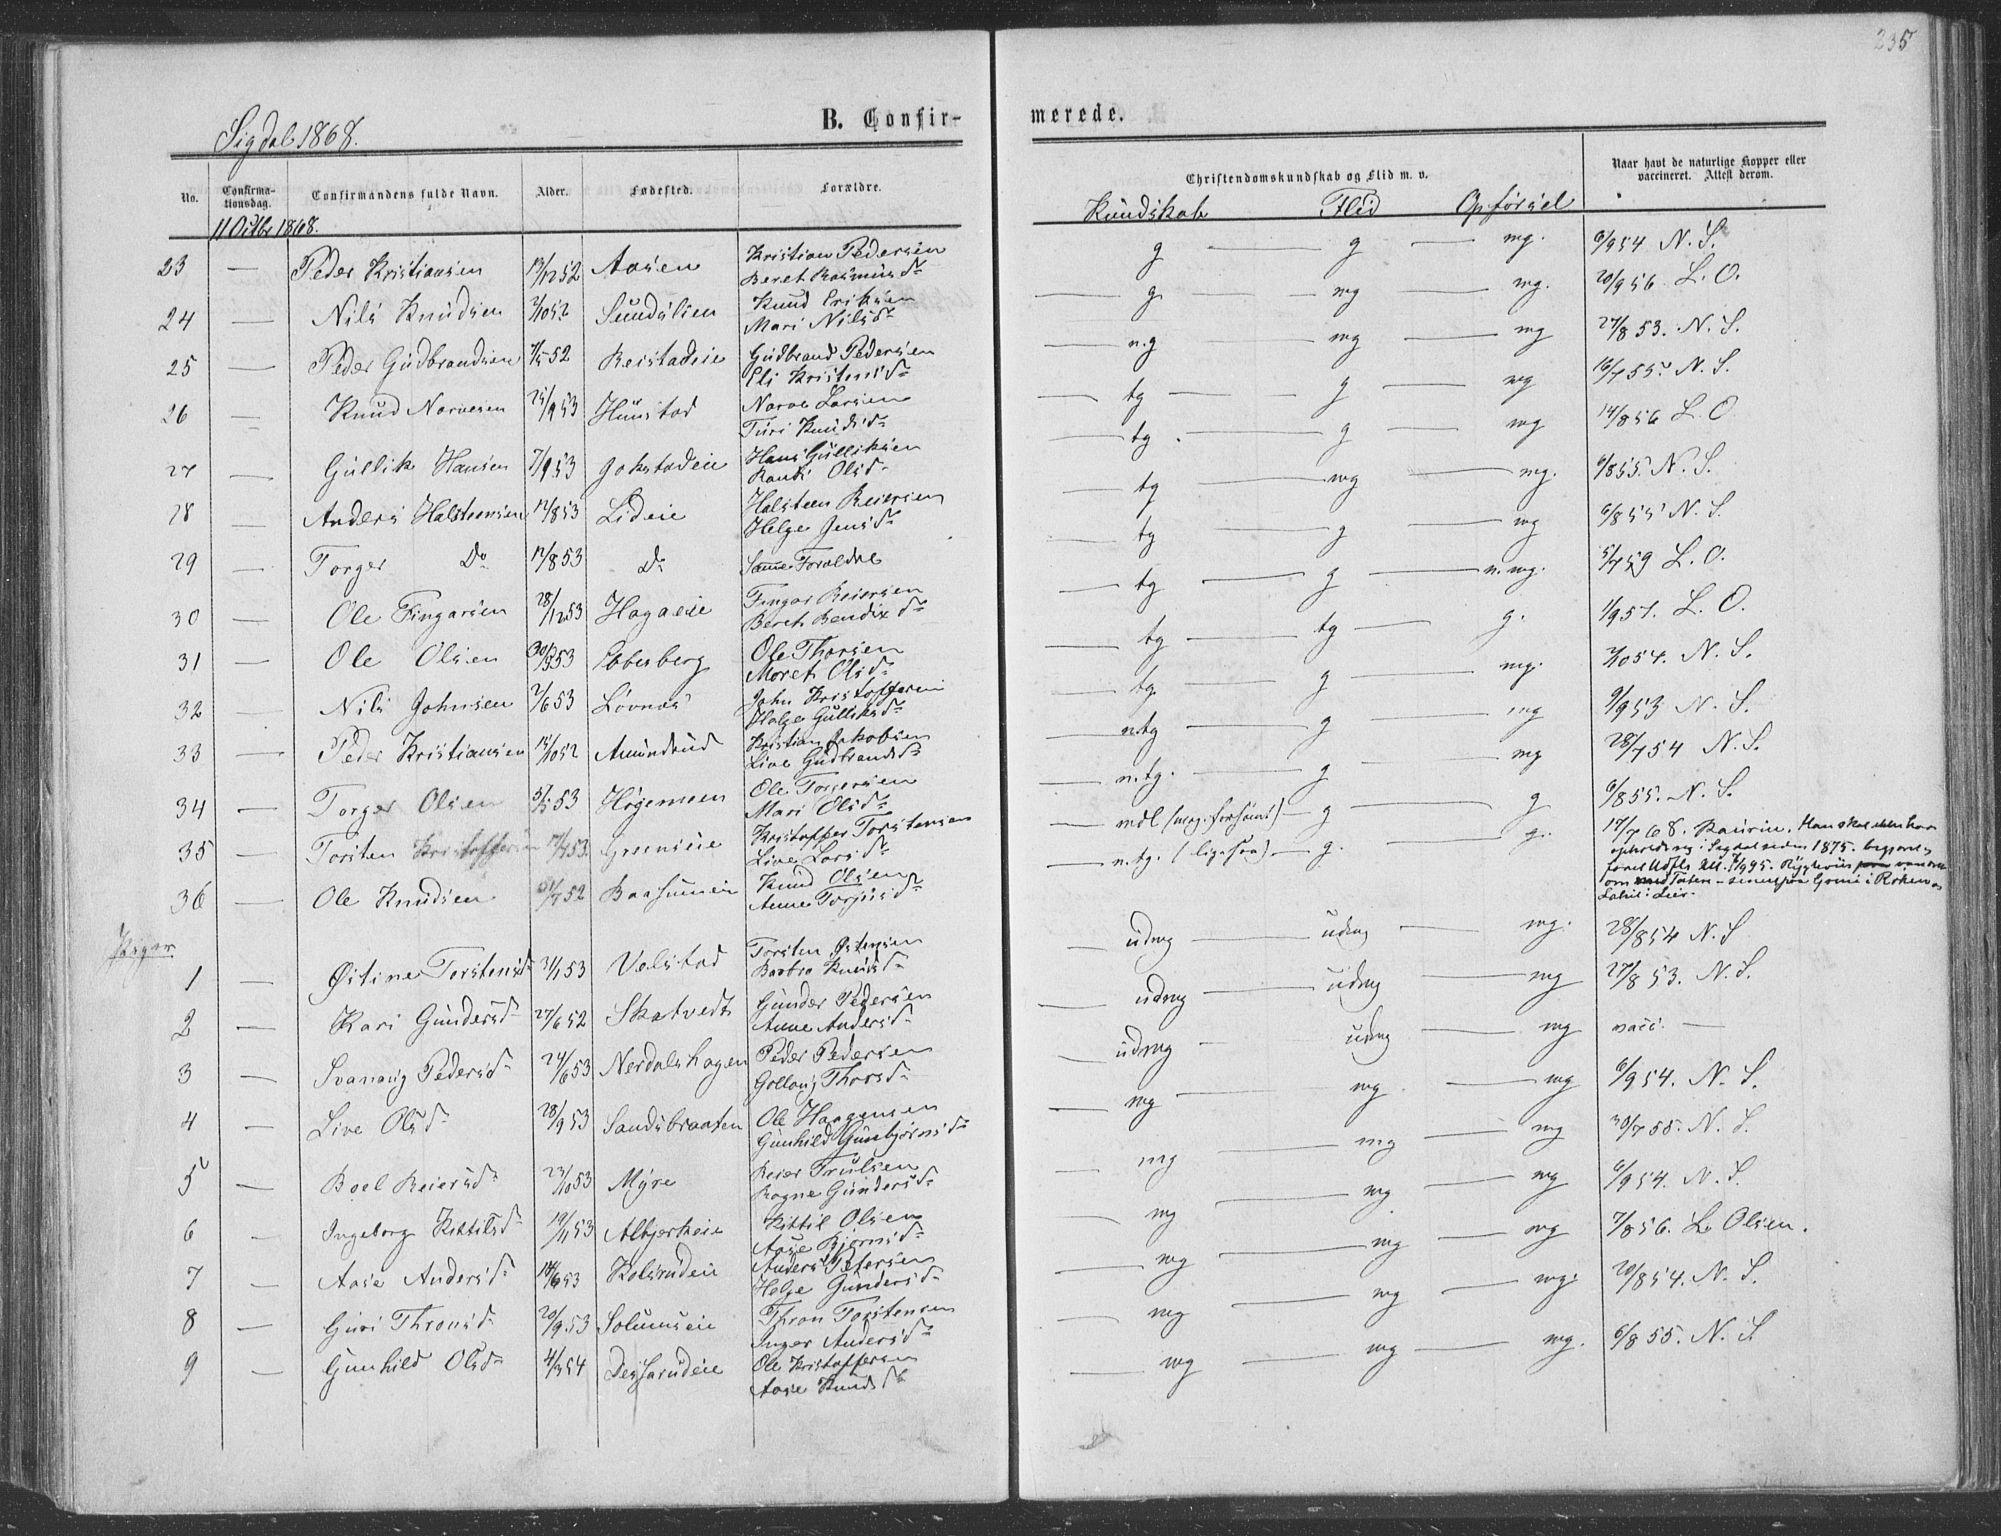 235
Sigdal 1868.
B. Confir-
merede.
No. Confirma-tionsdag. Confirmandens fulde Navn. Alder. Fødested. Forældre.
Christendomskundskab og Flid m. v. Naar havt de naturlige Kopper eller vaccineret. Attest derom.
Kundskab Flid Opførsel
11 Octbr 1868.
23 — Peder Kristiansen 13/12 52 Aasen Kristian Pedersen g — g — mg. 6/9 54 N. S.
Beret Rasmusd.
24 — Nils Knudsen 2/10 52 Sundslien Knud Eriksen — g. — mg — mg. 20/9 56 L. O.
Mari Nilsd.
25 — Peder Gudbrandsen 7/5 52 Reistadeie Gudbrand Pedersen — n.g — mg — mg 27/8 53. N. S.
Eli Kristensd.
26 — Knud Narvesen 25/9 53 Hunstad Narve Larsen — tg — g — mg 16/7 55. N. S.
Turi Knudsd.
27 — Gullik Hansen 7/9 53 Jokstadeie Hans Gulliksen — tg. — g — mg 14/8 56 L. O
Randi Olsd.
28 — Anders Halsteensen 12/8 53 Lideie Halsteen Reiersen — tg — mg — mg. 6/8 55. N. S.
Helge Jensd.
29 — Torger Do 12/8 53 Do Samme Forældre — tg — g — mg 6/8 55 N. S.
30 — Ole Fingarsen 28/12 53 Hagaeie Fingar Reiersen — tg — g — n.mg. 5/7 59 L. O.
Beret Bendixd.
31 — Ole Olsen 53 Ebbesberg Ole Thorsen — tg — tg — g. 1/9 57. L. O.
Maret Olsd.
32 — Nils Johnsen 2/6 53 Løvnæs John Kristoffersen — tg — g — mg. 2/10 54. N. S.
Helge Gulliksd.
33 — Peder Kristiansen 15/10 52 Amundrud Kristian Jakobsen — ntg — g — mg 9/9 53 N. S.
Live Gudbrandsd.
34 — Torger Olsen 53 Høgemoen Ole Torgersen — n.tg. — g — mg 28/7 54 N. S.
Mari Olsd.
35 — Torsten Kristoffersen 17/7 53. Grenseie Kristoffer Torstensen — mdl (meg. forsømt) — g — g 6/8 55. N. S.
Live Larsd.
36 — Ole Knudsen 52 Baasumeie Knud Olsen — n.tg. (ligesaa) — g. — g. 17/7 68. Kaurin. Han skal ikke have
Anne Torjusd. opholdt sig i Sigdal siden 1875. begjæret
om med Tatere — senest paa i Røken og
Lahell i Lier.
Piger
1 Østine Torstensd. 31/1 53 Velstad Torsten Østensen — udmg — udmg — mg. 28/8 54 N. S
Barbro Knudsd.
2 — Kari Gundersd. 27/6 52 Skatvedt Gunder Pedersen — udmg — udmg — mg 27/8 53. N. S.
Anne Andersd.
3 — Svanaug Pedersd. 24/6 53 Nerdalshagen Peder Pedersen — udmg — udmg — mg vacc. —
Gollaug Thorsd.
4 — Live Olsd. 28/9 53 Sandsbraaten Ole Haagensen — mg — mg — mg 6/9 54. N. S.
Gunhild Gunbjørnsd.
5 — Boel Reiersd. 23/10 53 Myre Reier Trulsen — mg — mg — mg 30/7 55. N. S.
Ragne Gundersd.
6 — Ingeborg Kittilsd. 19/11 53 Albjerkeie Kittil Olsen — mg — mg — mg 6/9 54. N. S.
Aase Bjørnsd.
7 — Aase Andersd. 18/6 53 Kolsrudeie Anders Petersen — mg — mg — mg 7/8 56. L. Olsen.
Helge Gundersd.
8 — Guri Thronsd. 20/9 53 Solumseie Thron Torstensen — mg — mg — mg. 20/8 54. N. S.
Inger Andersd.
9 — Gunhild Olsd. 4/3 54 Ole Kristoffersen — mg — mg — mg. 6/8 55. N. S.
Aase Knudsd.